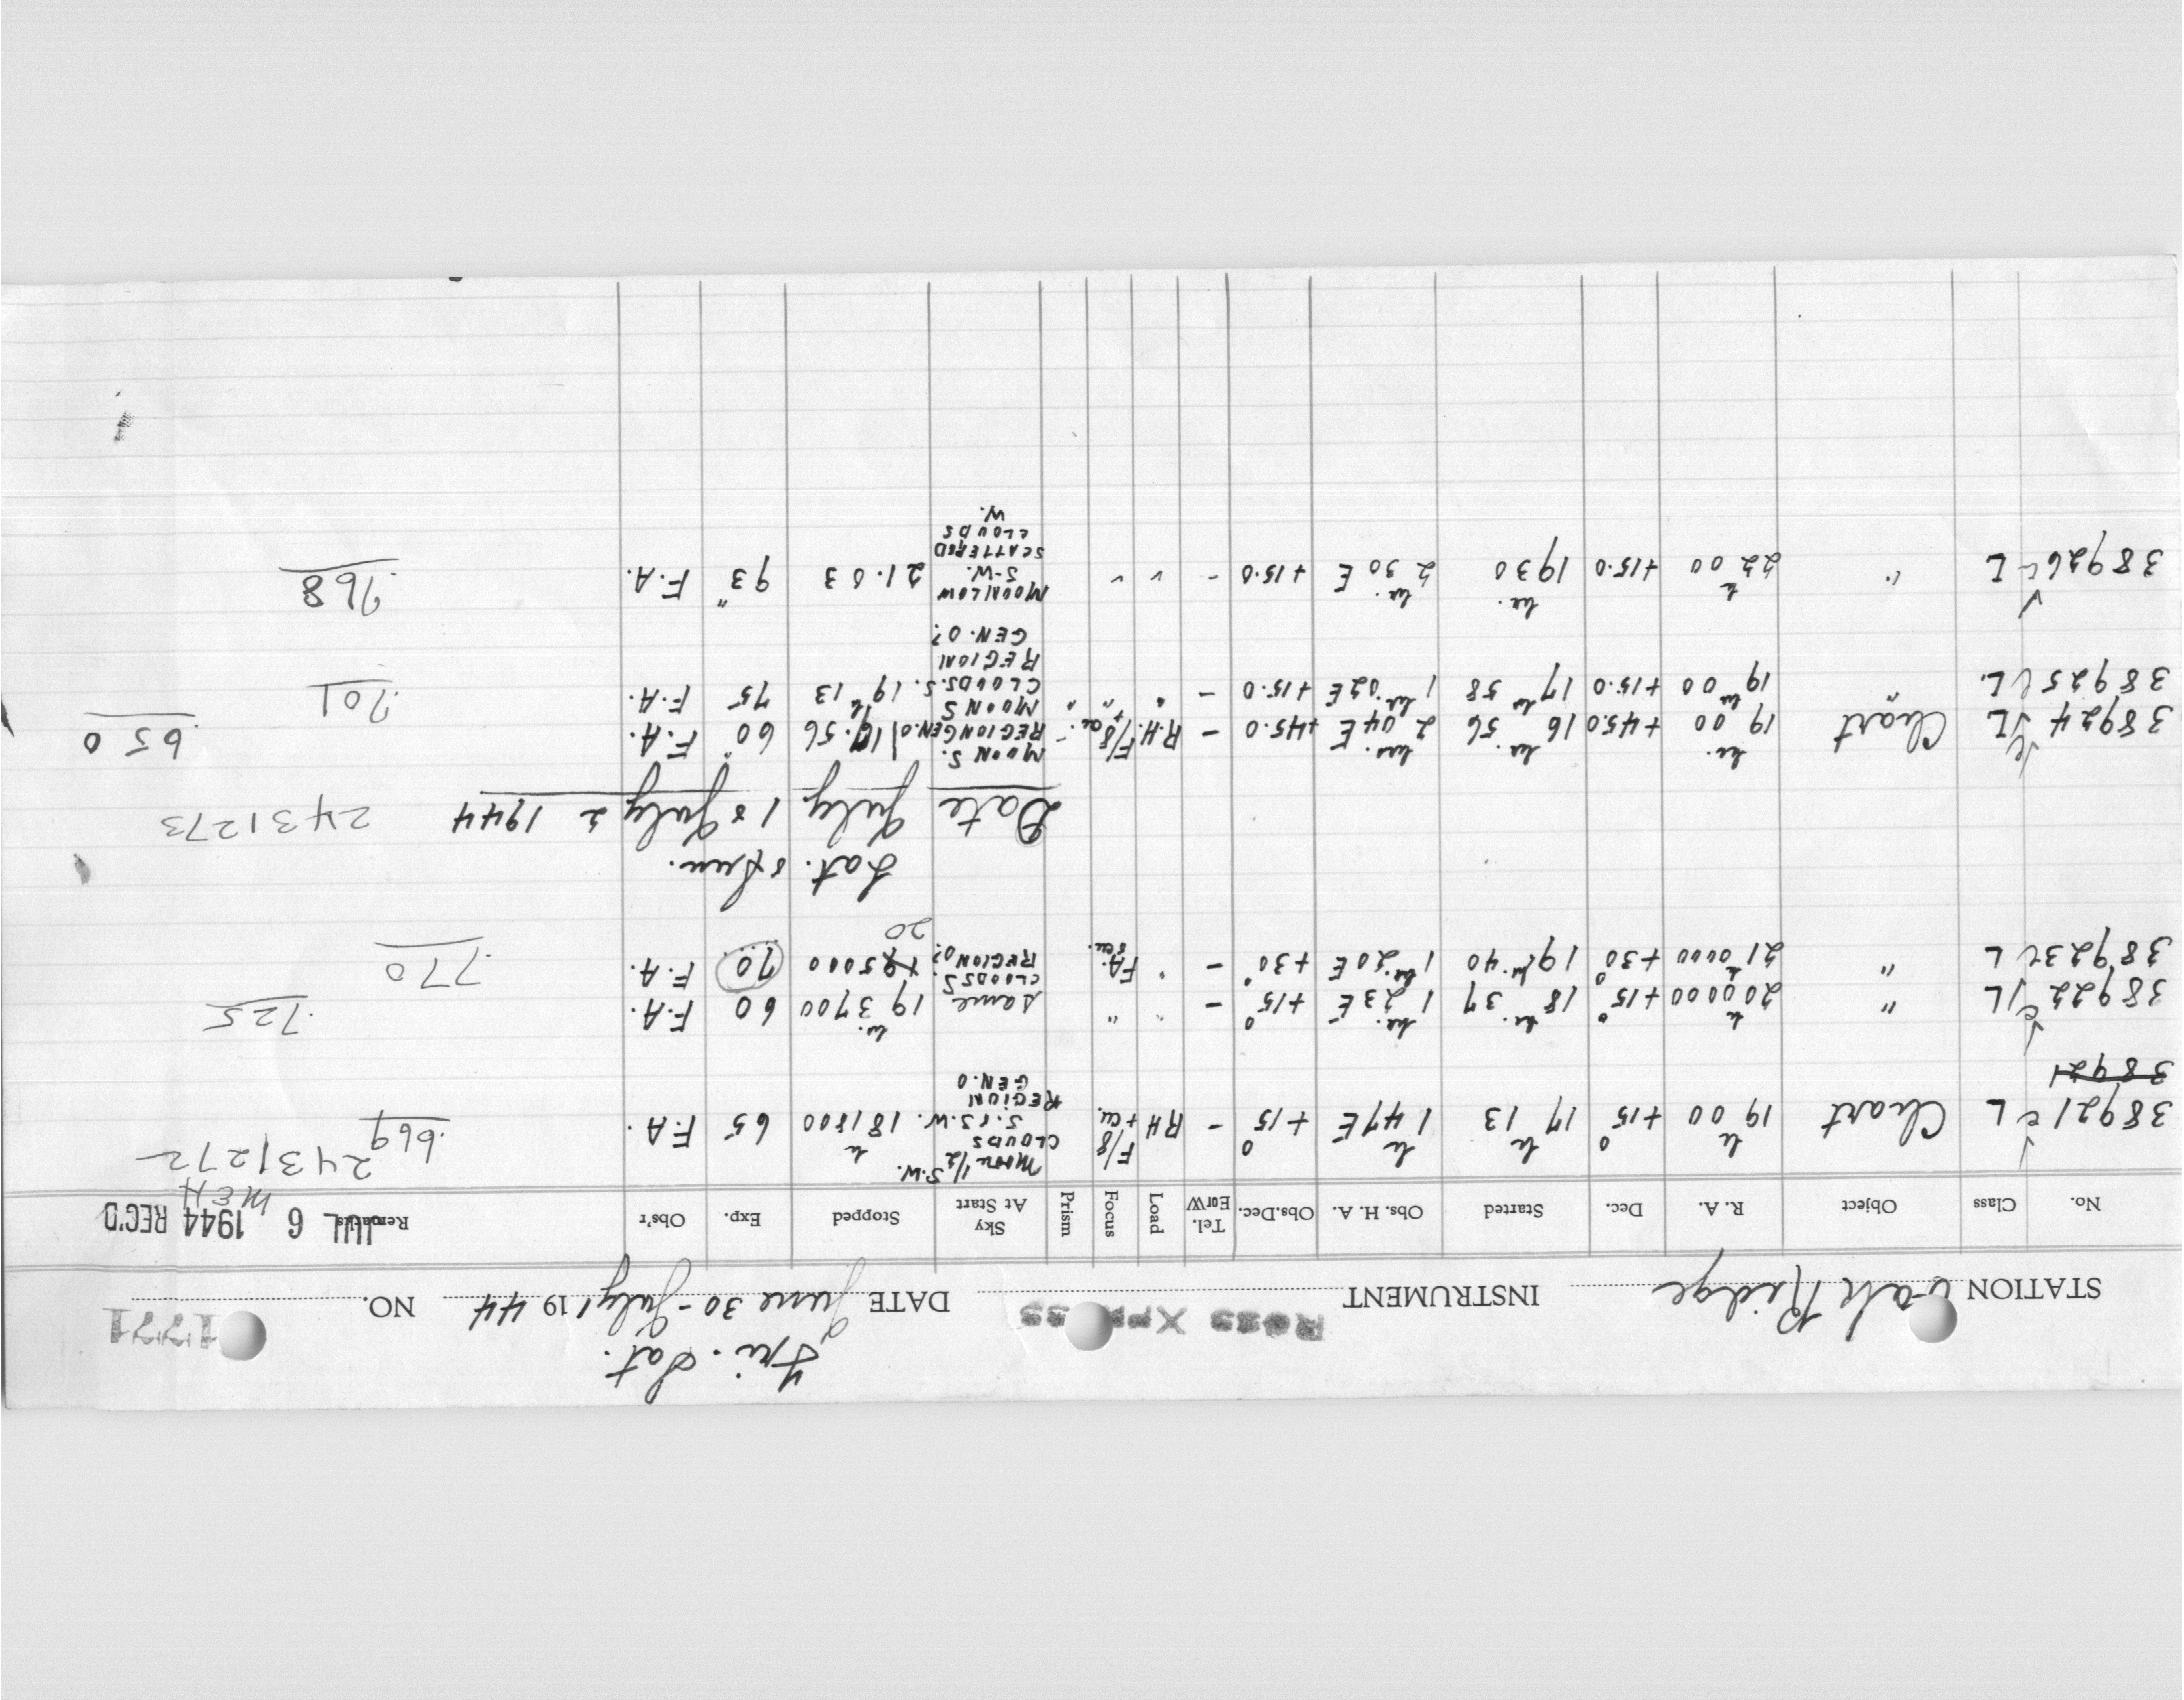 Fri. Sat.
STATION Oak Ridge INSTRUMENT Ross Xpress DATE June 30 - July 1 19 44 NO. 1771
No. Class Object R. A. Dec. Started Obs. H. A. Obs. Dec. Tel. E or W Load Focus Prism Sky At Start Stopped Exp. Obs'r Remarks
JUL 6 1944 REC'D
MEH
2431272
38921 L Chart 19h 00 +15° 17h 13 1h 47 E +15° - RH F/8 + cu. MOON 1/2 S.W. CLOUDS S. & S.W. REGION GEN. O 18h 18 00 65 F.A. .669
38921
38922 L " 20h 00 00 +15° 18hr. 37 1hr. 23 E +15° - " " same 19hr. 37 00 60 F.A. .725
38923 L " 21h 00 00 +30° 19hr. 40 1hr. 20 E +30° - " F.A. & cu. CLOUDS S. REGION O? 20 50 00 70 F.A. .770
Sat. & Sun.
Date July 1 & July 2 1944 2431273
38924 L Chart 19hr. 00 +45.0 16hr. 56 2hrs. 04 E +45.0 - R.H. F/8 + cu. - MOON S. REGION GEN. O 17.56 60 F.A. .650
38925 L. " 19hr 00 +15.0 17hr 58 1hr. 02 E +15.0 - " " " MOON S CLOUDS. S. REGION GEN. O? 19h 13 75 F.A. .701
38926 L " 22h 00 +15.0 19hr. 30 2hr. 30 E +15.0 - " " MOON LOW S-W. SCATTERED CLOUDS W. 21.03 93 F.A. .768